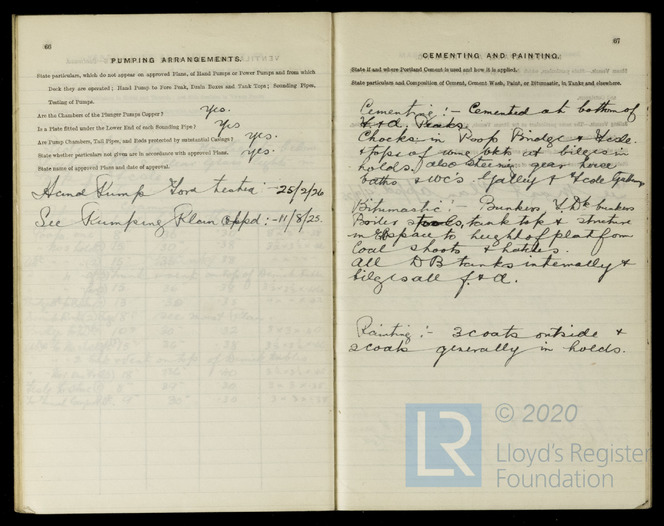 66
PUMPING ARRANGEMENTS.
State particulars, which do not appear on approved Plans, of Hand Pumps or Power Pumps and from which
Deck they are operated; Hand Pump to Fore Peak, Drain Boxes and Tank Tops; Sounding Pipes,
Testing of Pumps.
Are the Chambers of the Plunger Pumps Copper? Yes.
Is a Plate fitted under the Lower End of each Sounding Pipe? Yes
Are Pump Chambers, Tail Pipes, and Rods protected by substantial Casings? Yes.
State whether particulars not given are in accordance with approved Plans. Yes.
State name of approved Plans and date of approval.
Hand Pump Ford tested :- 25/2/26
See Pumping Plan appd :- 11/8/25.
67
CEMENTING AND PAINTING.
State if and where Portland Cement is used and how it is applied.
State particulars and Composition of Cement, Cement Wash, Paint, or Bitumastic, in Tanks and elsewhere.
Cementing :- Cemented at bottom of
F. & A. Peaks.
Chocks in Poop Bridge & Fcle.
& tops of wing bkts at bilges in
holds, also steering gear house
baths & WC's. Galley & Fcle
Bitumastic :- Bunkers, bunkers
Boiler stools, tank top & structure
in space to height of platform
Coal shoots & hatches.
All DB tanks internally &
bilges all f. & a.
Painting :- 3 coats outside &
2 coats generally in holds.
© 2020
LR
Lloyd's Register
Foundation